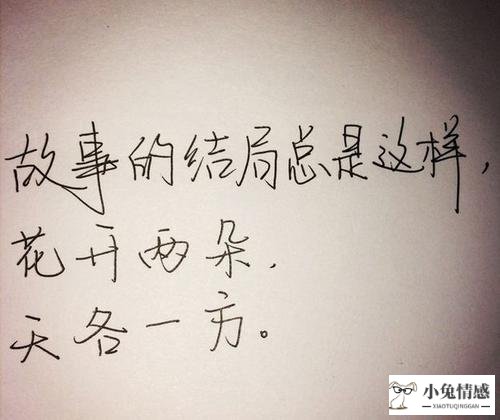 故事的结局总是这样，
花开两朵，
天各一方。
小兔情感
XIAOTUQINGGAN